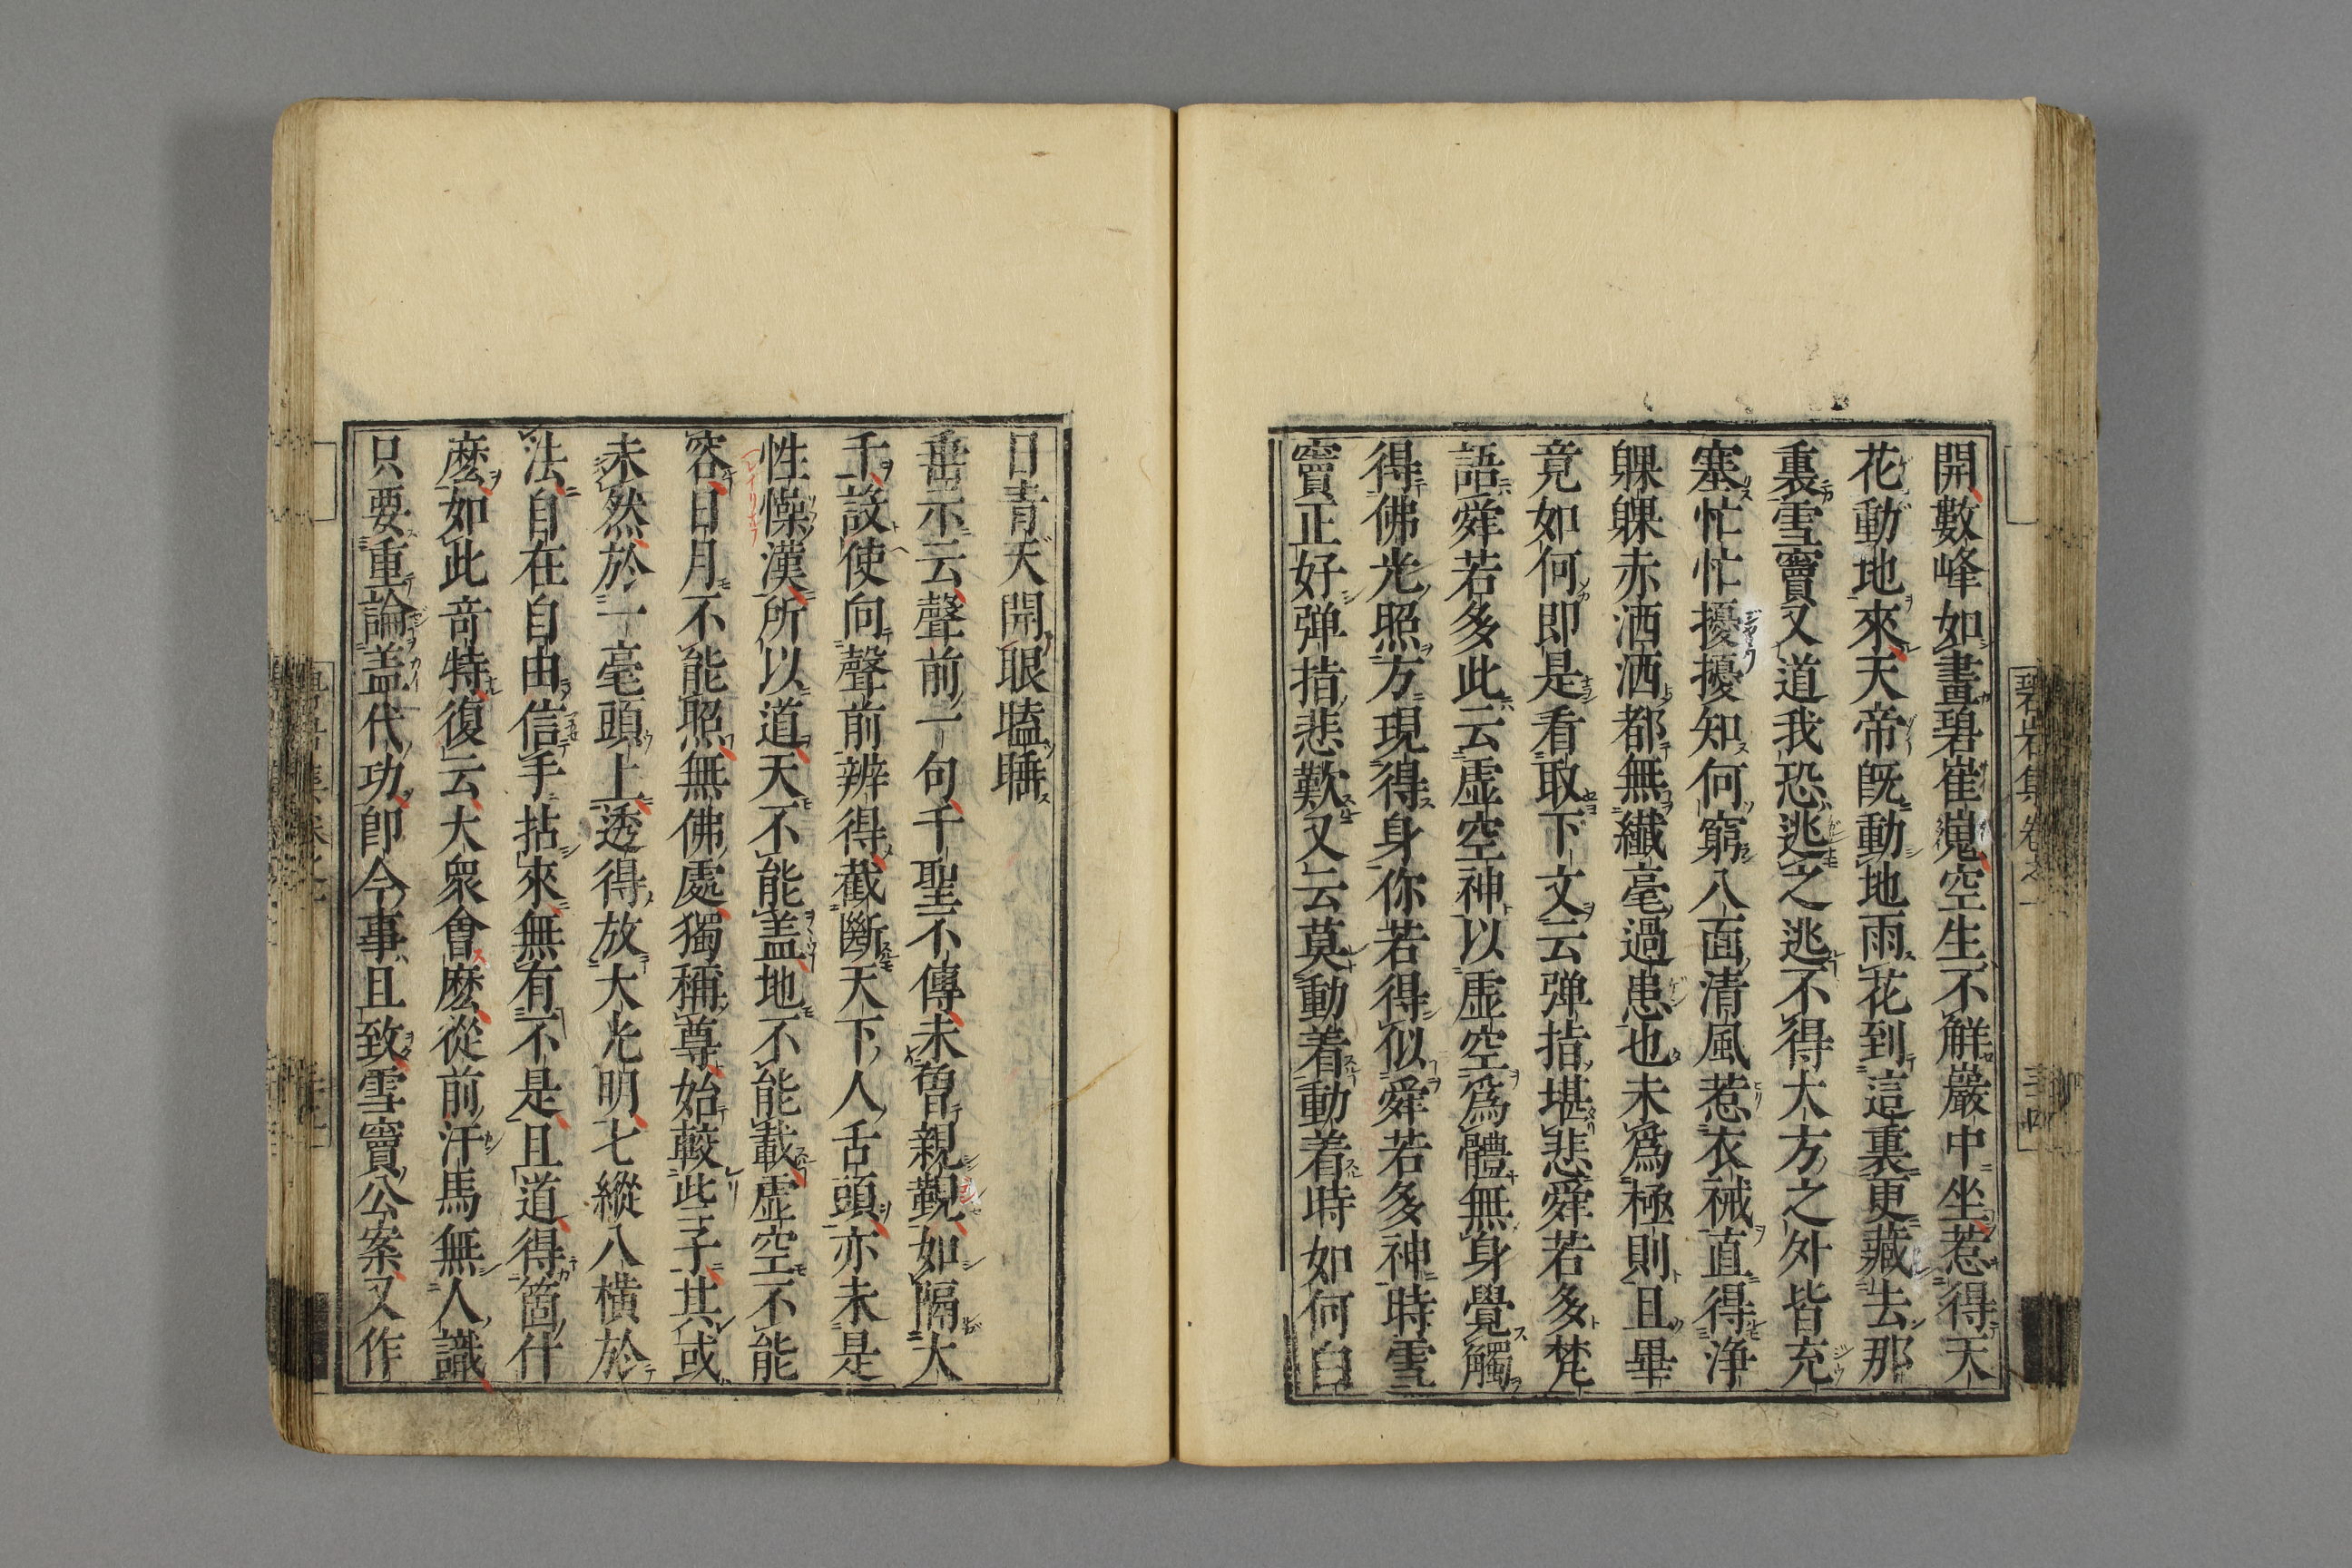 開數峰如畫碧崔嵬空生不解巖中坐惹得天
花動地來天帝既動地雨花到這裏更藏去那
裏雪竇又道我恐逃之逃不得大方之外皆充
塞忙忙擾擾知何窮八面清風惹衣裓直得淨
躶躶赤洒洒都無纎毫過患也未爲極則且畢
竟如何即是看取下文云弹指堪悲舜若多梵
語舜若多此云虛空神以虛空爲體無身覺觸
得佛光照方現得身你若得似舜若多神時雪
竇正好弹指悲歎又云莫動着動着時如何白
日青天開眼瞌睡
垂示云聲前一句千聖不傳未曾親覲如隔大
千設使向聲前辨得截斷天下人舌頭亦未是
性懆漢所以道天不能盖地不能載虛空不能
容日月不能照無佛處獨稱尊始較些子其或
未然於一毫頭上透得放大光明七縱八橫於
法自在自由信手拈來無有不是且道得箇什
麽如此奇特復云大衆會麽從前汗馬無人識
只要重論盖代功即今事且致雪竇公案又作
碧岩集卷之一